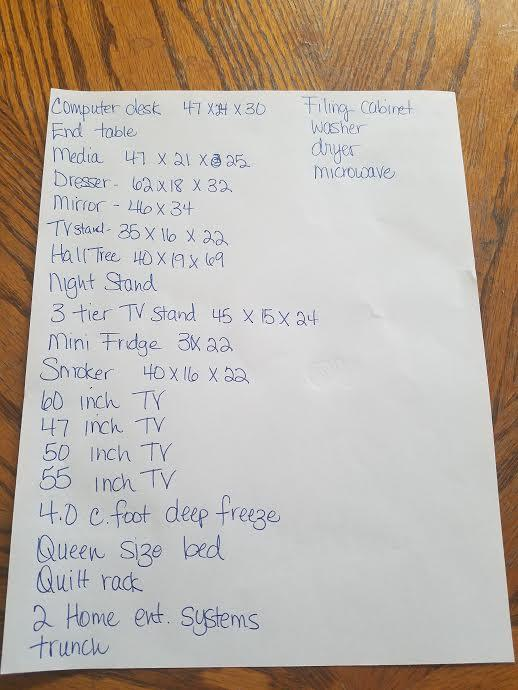 Computer desk 47 X 24 X 30
End table
Media 47 X 21 X 25
Dresser - 62 X 18 X 32
Mirror - 46 X 34
TV stand - 35 X 16 X 22
Hall Tree 40 X 19 X 69
Night Stand
3 tier TV stand 45 X 15 X 24
Mini Fridge X 22
Smoker 40 X 16 X 22
60 inch TV
47 inch TV
50 inch TV
55 inch TV
4.0 c. foot deep freeze
Queen size bed
Quilt rack
2 Home ent. systems
trunch
Filing cabinet
washer
dryer
microwave